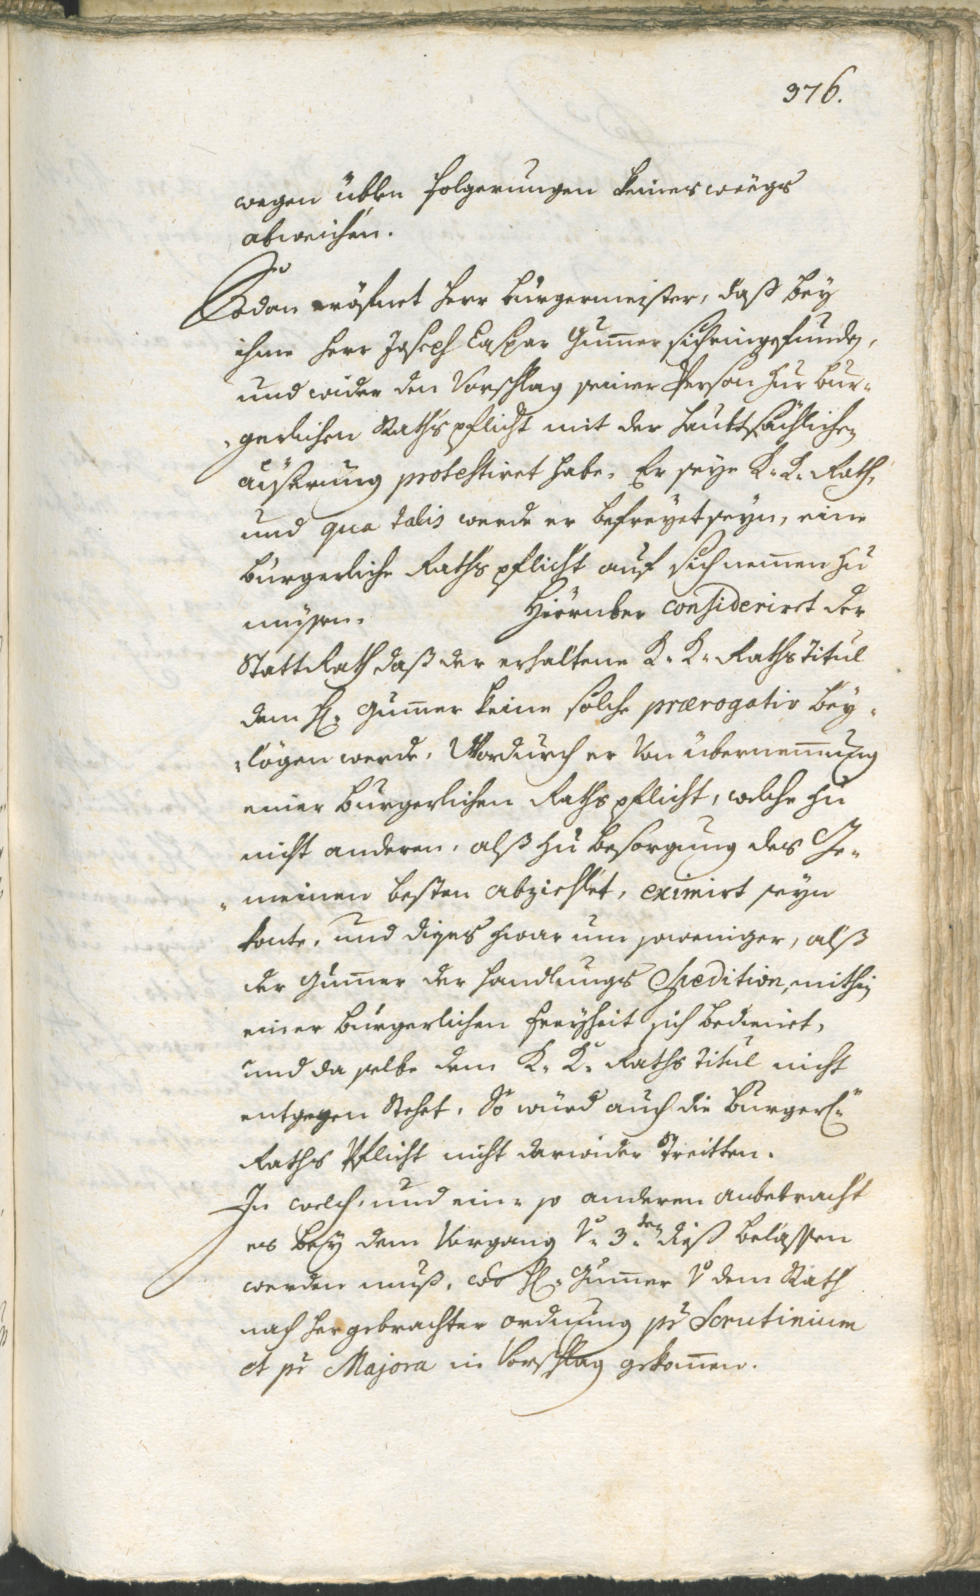 376.
wegen üblen folgerungen keinesweegs
abweichen.
Sodan eröfnet Herr Burgermeister, daß bey
ihme Herr Joseph Caspar Gum̄er sich eingefunden,
und wider den Vorschlag seiner Person zur Bur-
-gerlichen Rathspflicht mit der haubtsächlichen
äüßerung protestiret habe, Er seye K. K. Rath,
und qua talis werde er befreyet seyn, eine
Burgerliche Rathspflicht auf sich nem̄en zu
müssen. Hierüber consideriret der
Statt Rath daß der erhaltene K. K. Raths Titul
dem H. Gum̄er keine solche prærogativ bey-
-lögen werde, Wordurch er Von übernem̄ung
einer Burgerlichen Rathspflicht, welche zu
nicht anderen, alß zu besorgung des Ge-
-meinen besten abziehlet, eximirt seyn
konte, und dises zwar um so weniger, alß
der Gum̄er der handlungs Spedition, mithin
einer Burgerlichen freyheit sich bedienet,
und da selbe dem K. K. Raths Titul nicht
entgegen stehet, So würd auch die Burgerl.
Raths Pflicht nicht darwider streitten.
In welch, und ein- so anderen anbetracht
es bey dem Vorgang V. 3.ten diß belassen
werden muß, wo H. Gum̄er V. dem Rath
nach hergebrachter ordnung pr Scrutinium
et pr Majora in Vorschlag gekom̄en.